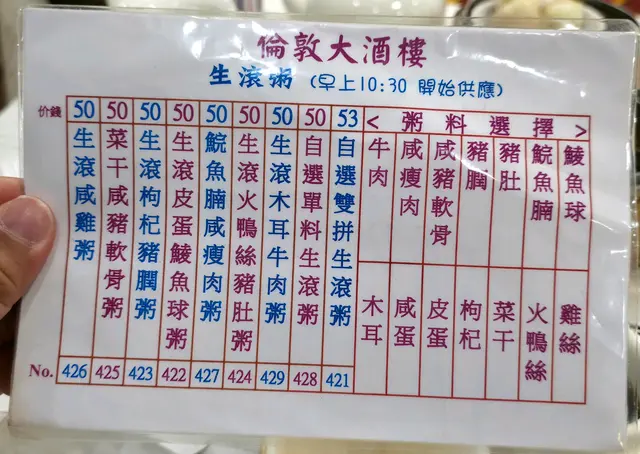 倫敦大酒樓
生滾粥 (早上10:30 開始供應)
价錢 50 50 50 50 50 50 50 50 53
<粥料選擇>
生滾咸雞粥
菜干咸豬軟骨粥
生滾枸杞豬膶粥
生滾皮蛋鯪魚球粥
鯇魚腩咸瘦肉粥
生滾火鴨絲豬肚粥
生滾木耳牛肉粥
自選單料生滾粥
自選雙拼生滾粥
牛肉
咸瘦肉
咸豬軟骨
豬膶
豬肚
鯇魚腩
鯪魚球
木耳
咸蛋
皮蛋
枸杞
菜干
火鴨絲
雞絲
No. 426 425 423 422 427 424 429 428 421